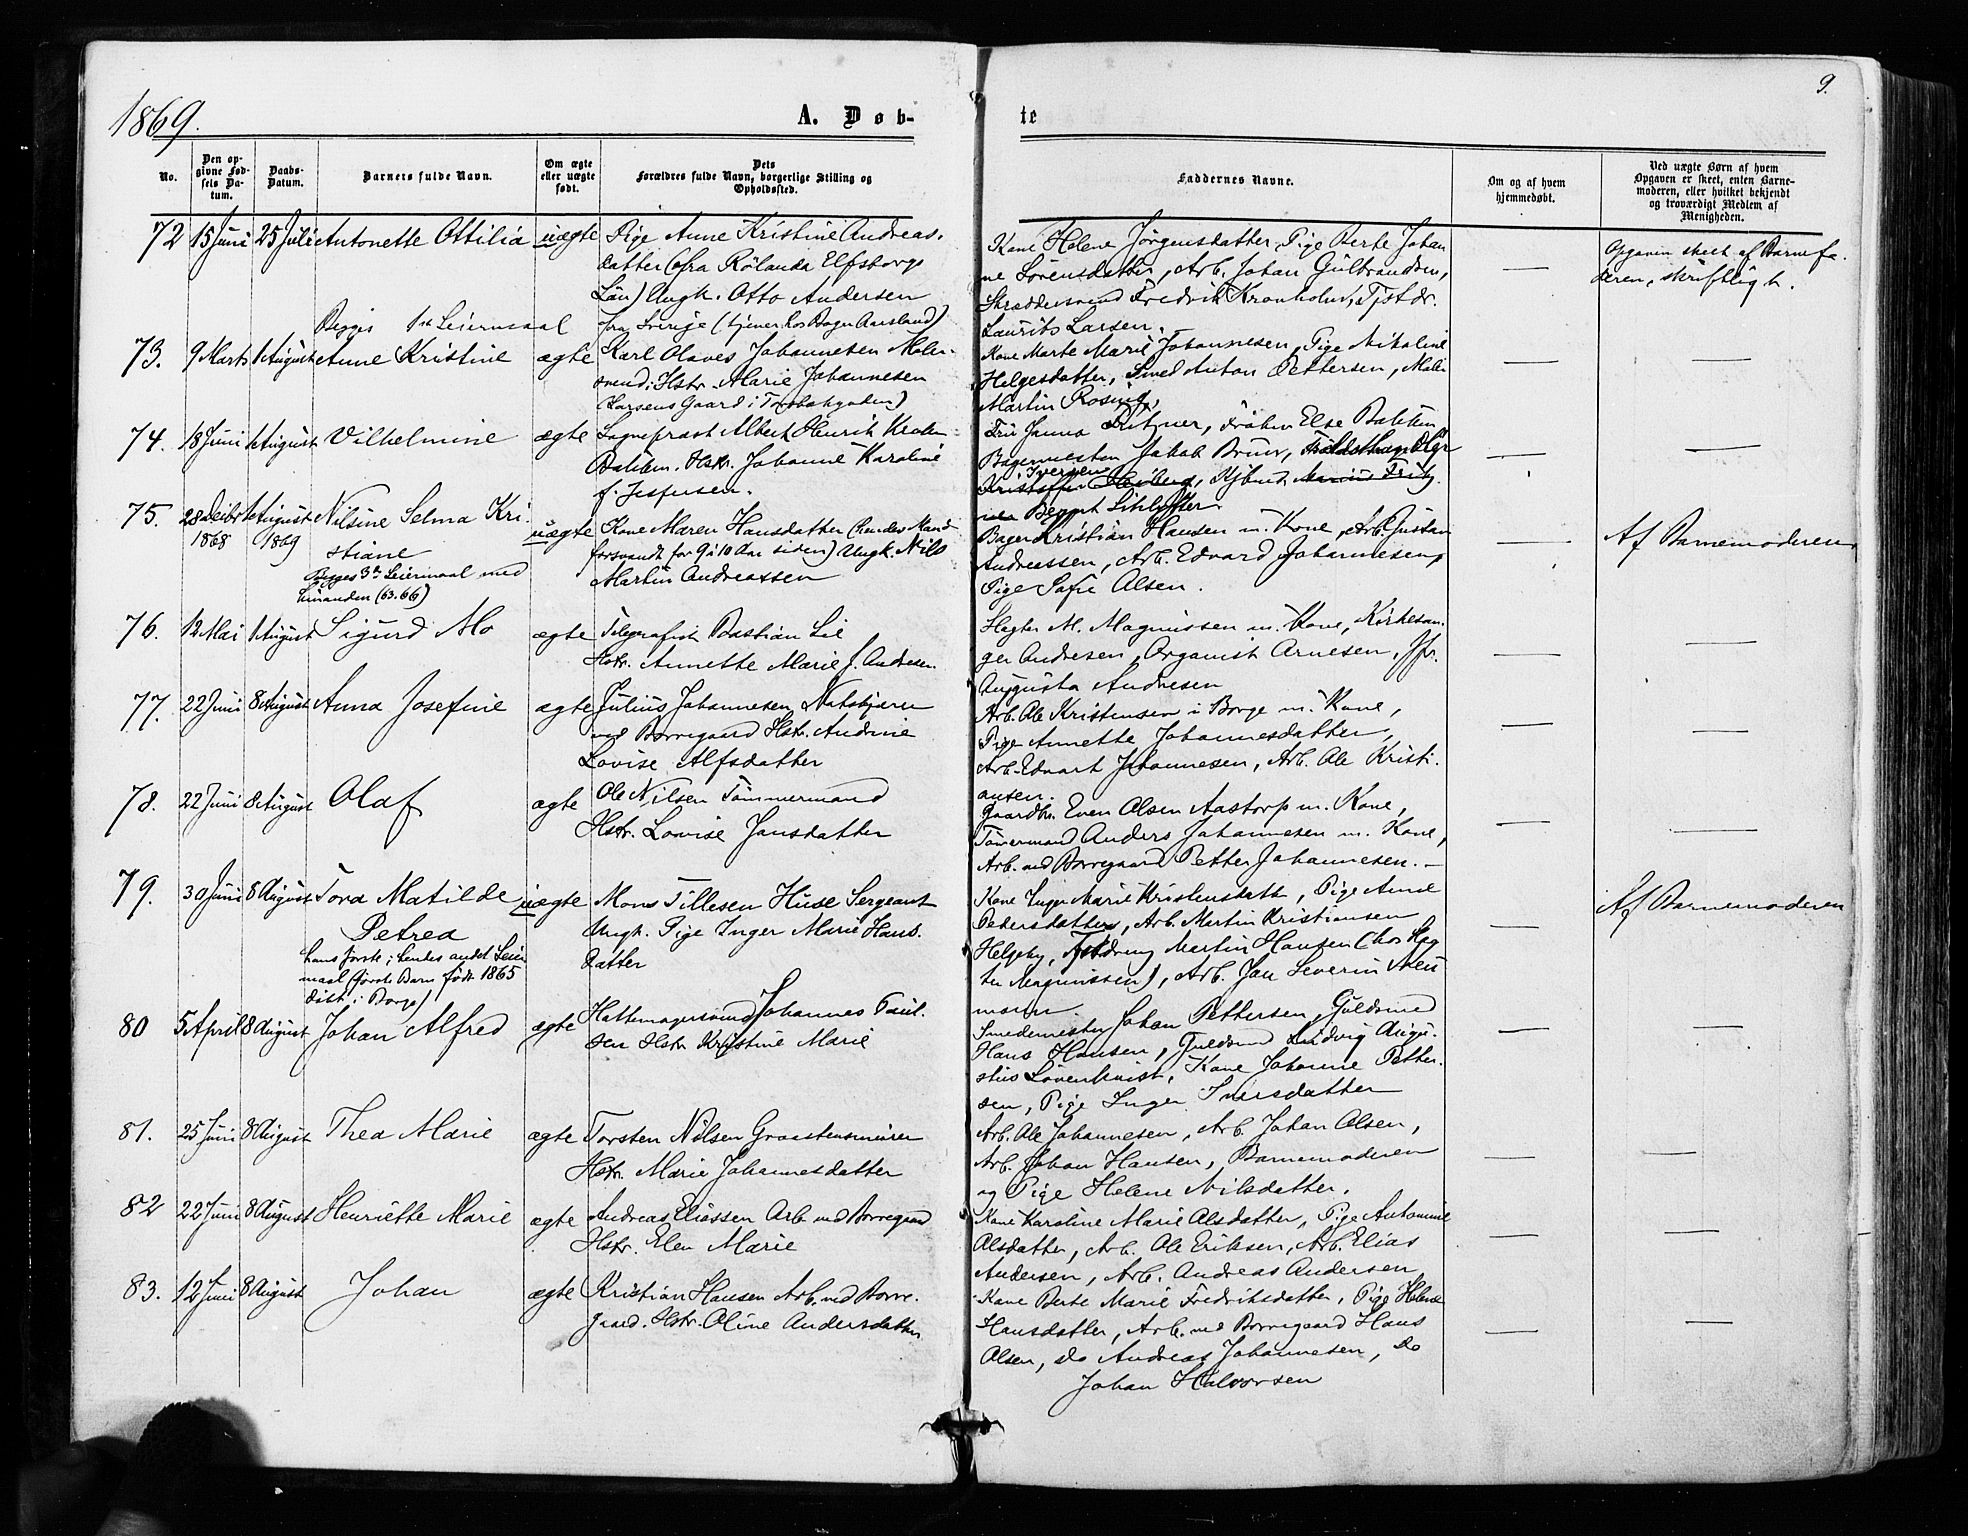 1869.
A. Døb-
te
9.
No.
Den op-
givne Fød-
sels Da-
tum.
Daabs-
Datum.
Barnets fulde Navn.
Om ægte
eller uægte
født.
Dets
Forældres fulde Navn, borgerlige Stilling og
Opholdssted.
Faddernes Navne.
Om og af hvem
hjemmedøbt.
Ved uægte Børn af hvem
Opgaven er skeet, enten Barne-
moderen, eller hvilket bekjendt
og troværdigt Medlem af
Menigheden.
72 15 Juni 25 Juli Antonette Ottilia uægte Pige Anne Kristine Andreas-
datter (fra Rölanda Elfsborgs
Län) Ungk. Otto Andersen
Begges 1ste Leiermaal fra Sverige (tjener hos Bager Aarsland)
Kone Helene Jörgensdatter, Pige Berte Johan
ne Sörensdatter, Arb. Johan Gulbrandsen,
Skræddersvend Fredrik Kronholm, Tjstdr.
Laurits Larsen.
—
Opgaven skeet af Barnefa-
deren, skriftligt.
73. 9 Marts 1 August Anne Kristine ægte Karl Olaves Johannesen Maler-
svend; Hstr. Marie Johannesen
(Larsens Gaard i Torsbakgaden)
Kone Marte Marie Johannesen, Pige Nikoline
Helgesdatter, Smed Anton Pettersen, Maler
Martin Rosnig,
— —
74. 18 Juni 1 August Vilhelmine ægte Sogneprest Albert Henrik Krohn
Balchen. Hstr. Johanne Karoline
f. Jespersen.
Fru Janna Ditzner, Fröken Else Balchen
Bagermester Jakob Bruun,
Iversen
Kristoffer
— —
75. 28 Decbr 1868 1 August 1869 Nilsine Selma Kri-
stiane
Begges 3die Leiermaal med
hinanden (63.66)
uægte Kone Maren Hansdatter (hendes Mand
forsvandt for 9 à 10 Aar siden) Ungk. Nils
Martin Andreassen
Bager Kristian Hansen m. Kone, Arb. Gustav
Andreassen, Arb. Edvard Johannesen,
Pige Sofie Olsen.
— Af Barnemoderen
76. 12 Mai 1 August Sigurd Mo ægte Telegrafist Bastian Lie
Hstr. Annette Marie f. Andresen.
Slagter M. Magnussen m. Kone, Kirkesan-
ger Andresen, Organist Arnesen, Jfr.
Augusta Andresen
— —
77. 22 Juni 8 August Anna Josefine ægte Julius Johannesen Natskjører
ved Borregaard Hstr. Andrine
Lovise Alfsdatter
Arb. Ole Kristensen i Borge m. Kone,
Pige Annette Johannesdatter,
Arb. Edvart Johannesen, Arb. Ole Kristi-
ansen.
— —
78. 22 Juni 8 August Olaf ægte Ole Nilsen Tömmermand
Hstr. Lovise Jansdatter
Gaardbr. Even Olsen Aastorp m. Kone,
Tömmermand Anders Johannesen m. Kone,
Arb. ved Borregaard Petter Johannesen. —
— —
79. 30 Juni 8 August Tora Matilde
Petrea
hans förste; hendes andet Leier
maal (förste Barn födt 1865
döbt i Borge)
uægte Mons Tillesen Huse Sergeant
Ungk. Pige Inger Marie Hans-
datter
Kone Inger Marie Kristensdatter, Pige Anne
Pedersdatter, Arb. Martin Kristiansen
Helgeby, Tjstdreng Martin Hansen (hos Slag
ter Magnussen), Arb. Jan Severin Neu
mann.
— Af Barnemoderen
80 5 April 8 August Johan Alfred ægte Hattemagersvend Johannes Paul-
sen Hstr. Kristine Marie
Smedemester Johan Pettersen, Guldsmed
Hans Hansen, Guldsmed Ludvig Augu-
stus Lövenkvist, Kone Johanne Petter-
sen, Pige Inger Iversdatter
— —
81. 25 Juni 8 August Thea Marie ægte Torsten Nilsen Graastensmurer
Hstr. Marie Johannesdatter
Arb. Ole Johannesen, Arb. Johan Olsen,
Arb. Johan Hansen, Barnemoderen
og Pige Helene Nilsdatter.
— —
82 22 Juni 8 August Henriette Marie ægte Andreas Eliassen Arb. ved Borregaard
Hstr. Elen Marie
Kone Karoline Marie Olsdatter, Pige Antonine
Olsdatter, Arb. Ole Eriksen, Arb. Elias
Andersen, Arb. Andreas Andersen
— —
83. 12 Juni 8 August Johan ægte Kristian Hansen Arb. ved Borre-
gaard. Hstr. Oline Andersdatter
Kone Berte Marie Fredriksdatter, Pige Helene
Hansdatter, Arb. ved Borregaard Hans
Olsen, do Andreas Johannesen, do
Johan Halvorsen
— —